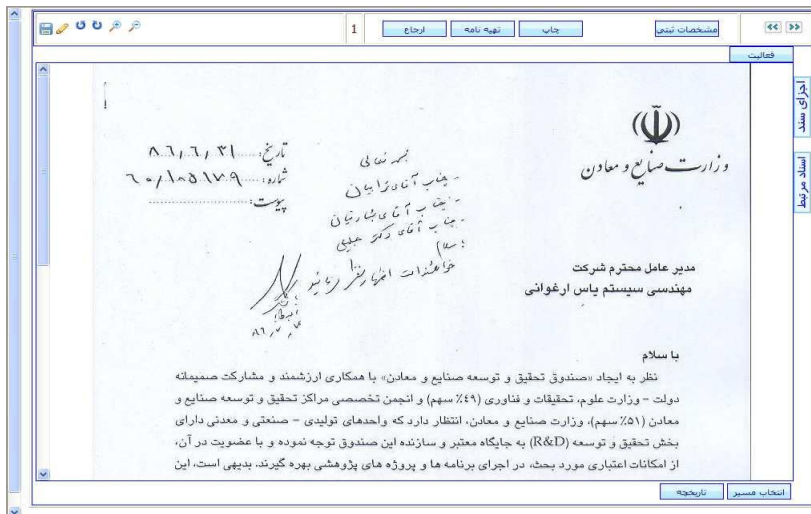 مشخصات ثبتی
چاپ
تهیه نامه
ارجاع
1
فعالیت
اجزای سند
اسناد مرتبط
وزارت صنایع و معادن
تاریخ: ۸۶/۶/۳۱
شماره: ۶۰/۱۰۵۱۷۹
پیوست:
بسمه تعالی
- جناب آقای ترابیان
- جناب آقای بشارتیان
- جناب آقای دکتر جلیلی
سلام
مدیر عامل محترم شرکت
مهندسی سیستم یاس ارغوانی
با سلام
نظر به ایجاد «صندوق تحقیق و توسعه صنایع و معادن» با همکاری ارزشمند و مشارکت صمیمانه
دولت – وزارت علوم، تحقیقات و فناوری (۴۹٪ سهم) و انجمن تخصصی مراکز تحقیق و توسعه صنایع و
معادن (۵۱٪ سهم)، وزارت صنایع و معادن، انتظار دارد که واحدهای تولیدی – صنعتی و معدنی دارای
بخش تحقیق و توسعه (R&D) به جایگاه معتبر و سازنده این صندوق توجه نموده و با عضویت در آن،
از امکانات اعتباری مورد بحث، در اجرای برنامه ها و پروژه های پژوهشی بهره گیرند. بدیهی است، این
انتخاب مسیر
تاریخچه